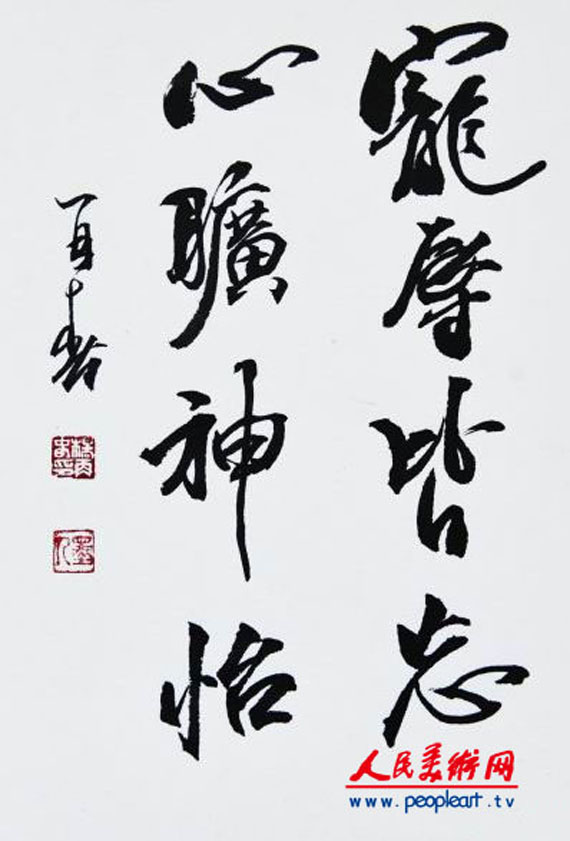 寵辱皆忘
心曠神怡
人民美術网
www.peopleart.tv